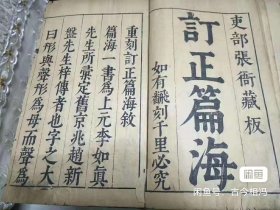 吏部張衙藏板
訂正篇海
如有翻刻千里必究
重刻訂正篇海敘
篇海一書為上元李如真
先生所彙定舊京兆趙新
盤先生梓傳者也字之大
曰形與聲形為母而聲為
闲鱼
闲鱼号：古今相鸿